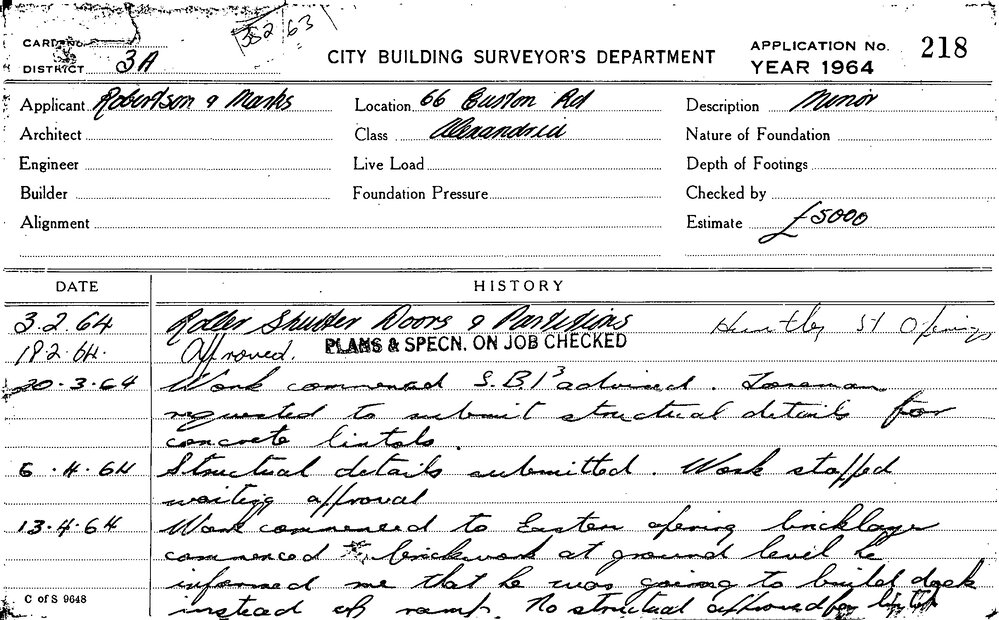 382/63
CARD No.
DISTRICT 3A
CITY BUILDING SURVEYOR'S DEPARTMENT
APPLICATION No. 218
YEAR 1964
Applicant Robertson & Marks Location 66 Euston Rd Description Minor
Architect Class Alexandria Nature of Foundation
Engineer Live Load Depth of Footings
Builder Foundation Pressure Checked by
Alignment Estimate £5000
DATE HISTORY
3.2.64 Roller Shutter Doors & Partitions Huntley St Openings
18.2.64. Approved. PLANS & SPECN. ON JOB CHECKED
20.3.64 Work commenced S.B.I3 advised. Foreman
requested to submit structural details for
concrete lintols.
6.4.64 Structural details submitted. Work stopped
waiting approval
13.4.64 Work commenced to Eastern opening bricklayer
commenced brickwork at ground level he
informed me that he was going to build dock
instead of ramp. No structural approved for lintol
C of S 9648